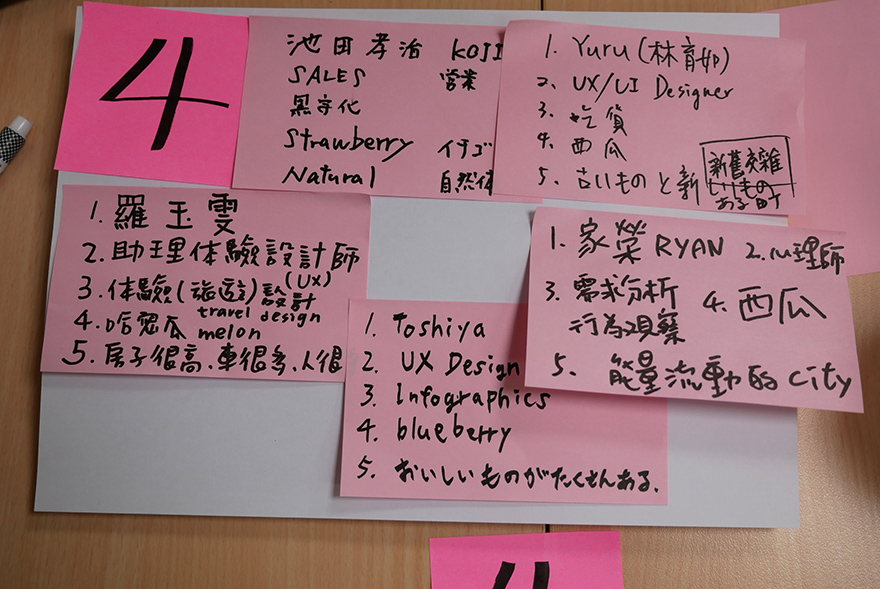 4
池田孝治 KOJI
SALES 営業
黒字化
Strawberry イチゴ
Natural 自然体
1. Yuru (林育如)
2. UX/UI Designer
3. 吃貨
4. 西瓜
5. 古いものと新
新舊交雜
いもの
ある町
1. 羅玉雯
2. 助理体驗設計師
3. 体驗(旅遊)設計(UX)
travel design
4. 哈蜜瓜 melon
5. 房子很高、車很多、人很
1. 家榮 RYAN 2. 心理師
3. 需求分析
行為观察
4. 西瓜
5. 能量流動的 City
1. Toshiya
2. UX Design
3. Infographics
4. blueberry
5. おいしいものがたくさんある.